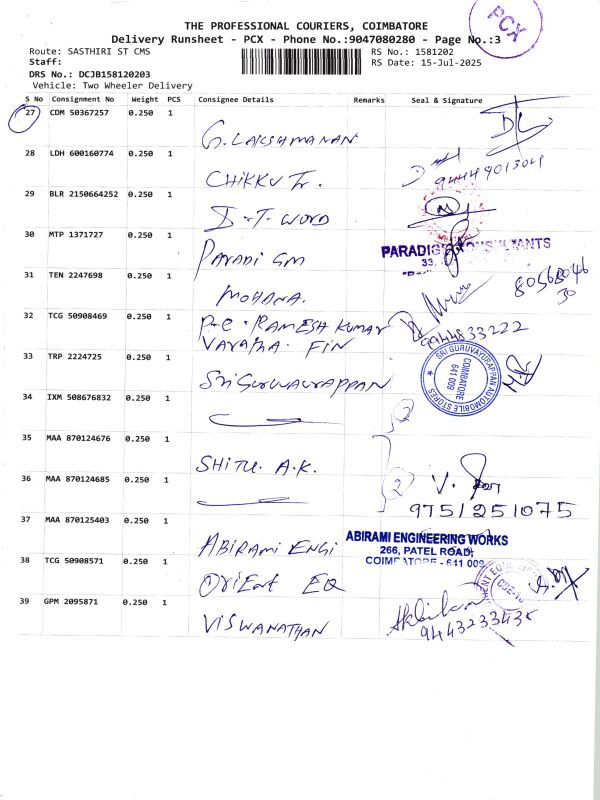 THE PROFESSIONAL COURIERS, COIMBATORE
PCX
Delivery Runsheet - PCX - Phone No.:9047080280 - Page No.:3
Route: SASTHIRI ST CMS
RS No.: 1581202
Staff:
RS Date: 15-Jul-2025
DRS No.: DCJB158120203
Vehicle: Two Wheeler Delivery
S No Consignment No Weight PCS Consignee Details Remarks Seal & Signature
27 CDM 50367257 0.250 1
G. LAKSHMANAN
28 LDH 600160774 0.250 1
CHIKKU Tr.
9444901304
29 BLR 2150664252 0.250 1
D.T. WORD
30 MTP 1371727 0.250 1
PARADI GM
PARADIG CONSULTANTS
31 TEN 2247698 0.250 1
MOHANA.
80568046
30
32 TCG 50908469 0.250 1
P.C. RAMESH KUMAR
VARAHA. FIN
9944833222
33 TRP 2224725 0.250 1
Sri Guruvayurappan
SRI GURUVAYURAPPAN AUTOMOBILE STORES
COIMBATORE
641 009
34 IXM 508676832 0.250 1
2
35 MAA 870124676 0.250 1
SHITU. A.K.
36 MAA 870124685 0.250 1
2
9751251075
37 MAA 870125403 0.250 1
ABIRAMI ENGI
ABIRAMI ENGINEERING WORKS
266, PATEL ROAD,
COIMBATORE - 641 009
38 TCG 50908571 0.250 1
Orient EQ
39 GPM 2095871 0.250 1
VISWANATHAN
9443233435